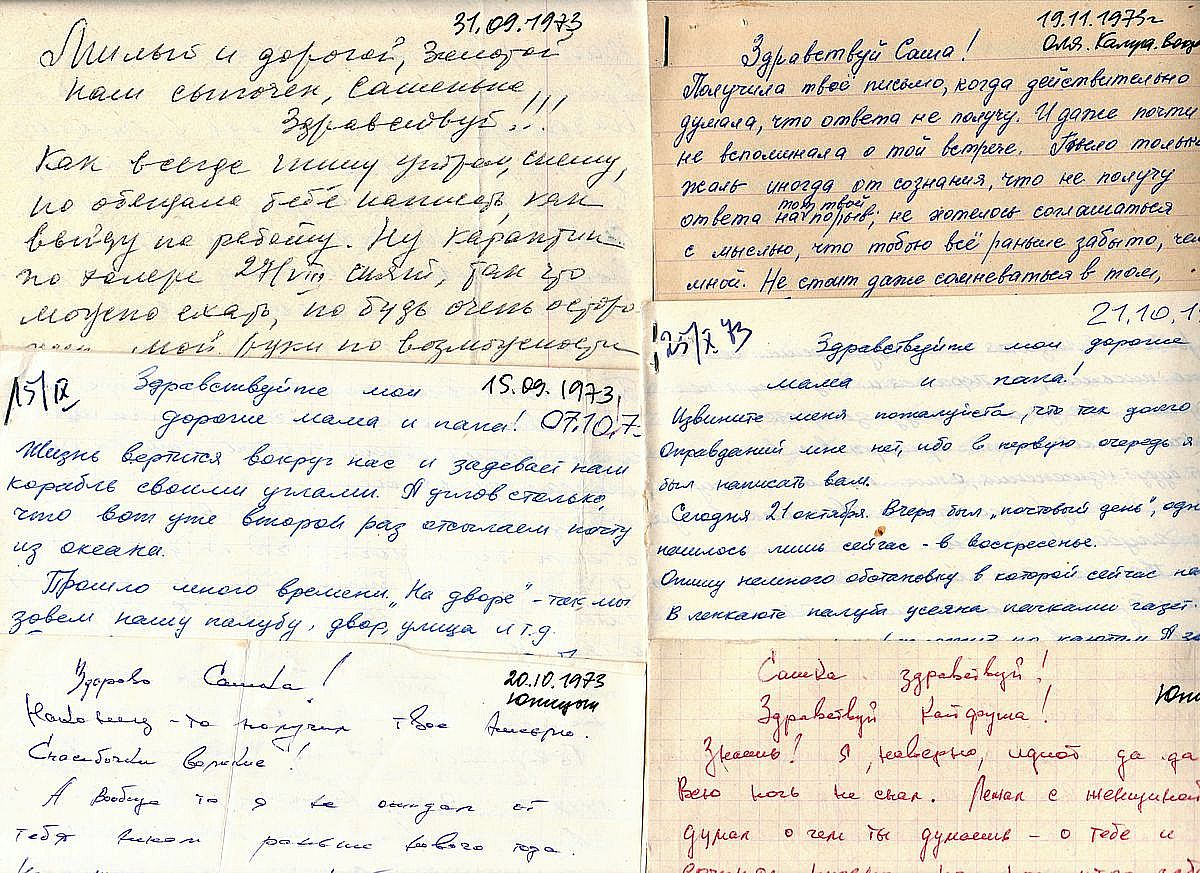 31.09.1973
Милый и дорогой, золотой
наш сыночек, Сашенька
Здравствуй!!!
Как всегда пишу утром, спешу,
но обещала тебе написать, как
выйду на работу. Ну карантин
по холере 27/VIII снят, так что
можно ехать, но будь очень осторо
мой руки по возможности
19.11.1973г
Оля. Калуга.
Здравствуй Саша!
Получила твоё письмо, когда действительно
думала, что ответа не получу. И даже почти
не вспоминала о той встрече. Было только
жаль иногда от сознания, что не получу
ответа на тот твой порыв; не хотелось соглашаться
с мыслью, что тобою всё раньше забыто, чем
мной. Не стоит даже сомневаться в том,
15/IX
15.09.1973,
07.10.7
Здравствуйте мои
дорогие мама и папа!
Жизнь вертится вокруг нас и задевает наш
корабль своими углами. А углов столько,
что вот уже второй раз отсылаем почту
из океана.
Прошло много времени. „На дворе" - так мы
зовем нашу палубу, двор, улица и т.д.
25/X 73
21.10.19
Здравствуйте мои дорогие
мама и папа!
Извините меня пожалуйста, что так долго
Оправданий мне нет, ибо в первую очередь я
был написать вам.
Сегодня 21 октября. Вчера был „почтовый день", одн
нашлось лишь сейчас - в воскресенье.
Опишу немного обстановку в которой сейчас на
В ленкаюте палуба усеяна пачками газет.
20.10.1973
Юпицын
Здорово Сашка!
Наконец-то получил твое письмо.
Спасибочки великие!
А вообще то я не ожидал от
тебя писем раньше нового года.
Юпи
Сашка здравствуй!
Здравствуй Кайфуша!
Знаешь! Я, наверно, идиот да да
Всю ночь не спал. Лежал с женщиной
думал о чем ты думаешь - о тебе и